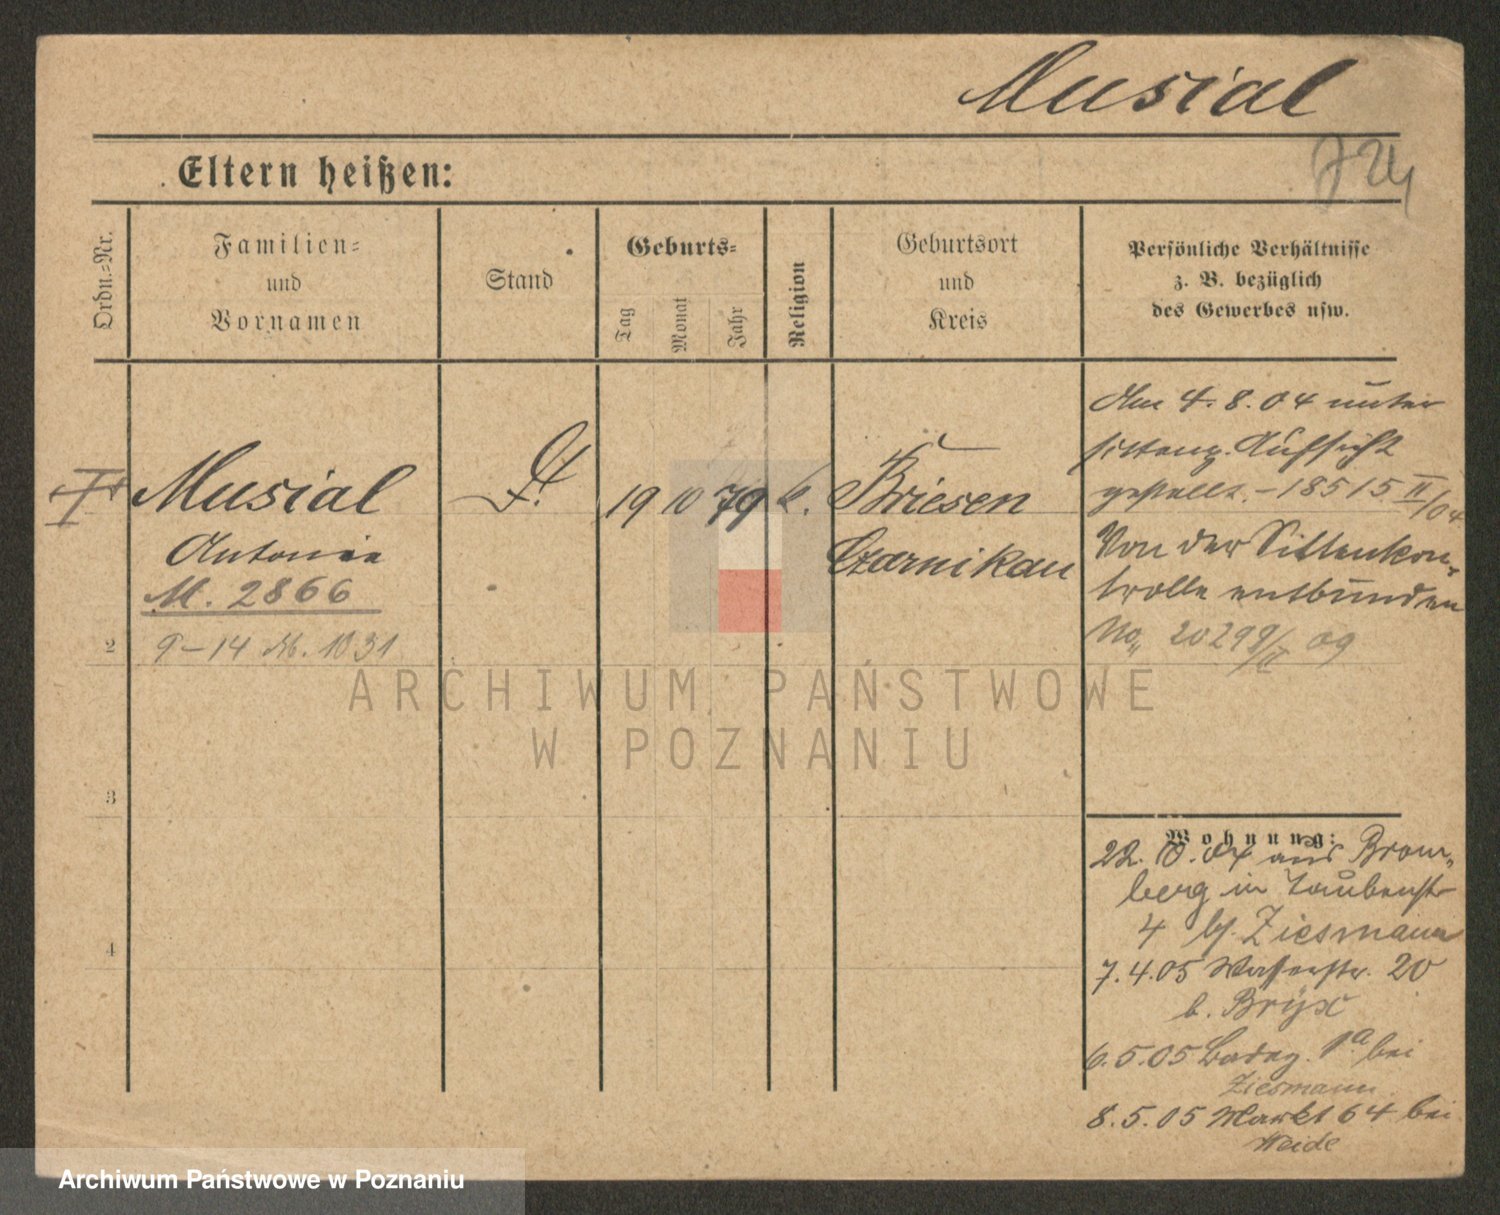 Musial
J 24
Eltern heißen:
Ordn.-Nr.
Familien-
und
Vornamen
Stand
Geburts-
Tag
Monat
Jahr
Religion
Geburtsort
und
Kreis
Persönliche Verhältnisse
z. B. bezüglich
des Gewerbes usw.
Musial
Antonie
M. 2866
9-14 Ab. 1031
19 10 79 k.
Briesen
Czarnikau
Am 4.8.04 unter
sittenp. Aufsicht
gestellt. - 18515 II/04
Von der Sittenkon-
trolle entbunden
No. 20298/II 09
2
3
4
Wohnung:
22. 10. 04 aus Brom-
berg in Taubenstr
4 bf. Ziesmann
7.4.05 Wasserstr. 20
b. Bryx
6.5.05 1a bei
Ziesmann
8.5.05 Markt 64 bei
Weide
ARCHIWUM PAŃSTWOWE
W POZNANIU
Archiwum Państwowe w Poznaniu